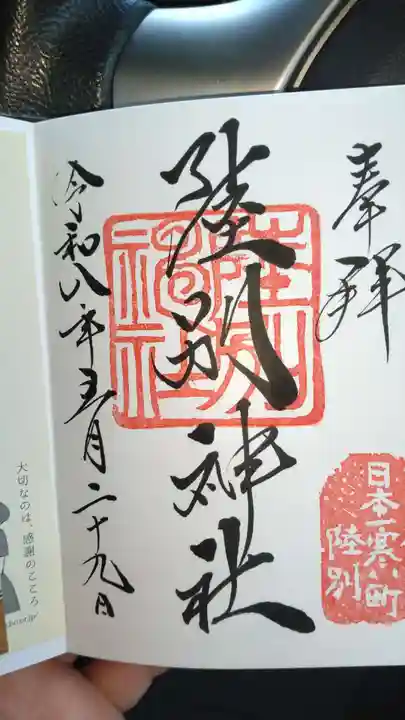 奉拝
日本一寒い町
陸別
陸別神社
陸別
神社
令和八年五月二十九日
大切なのは、感謝のこころ